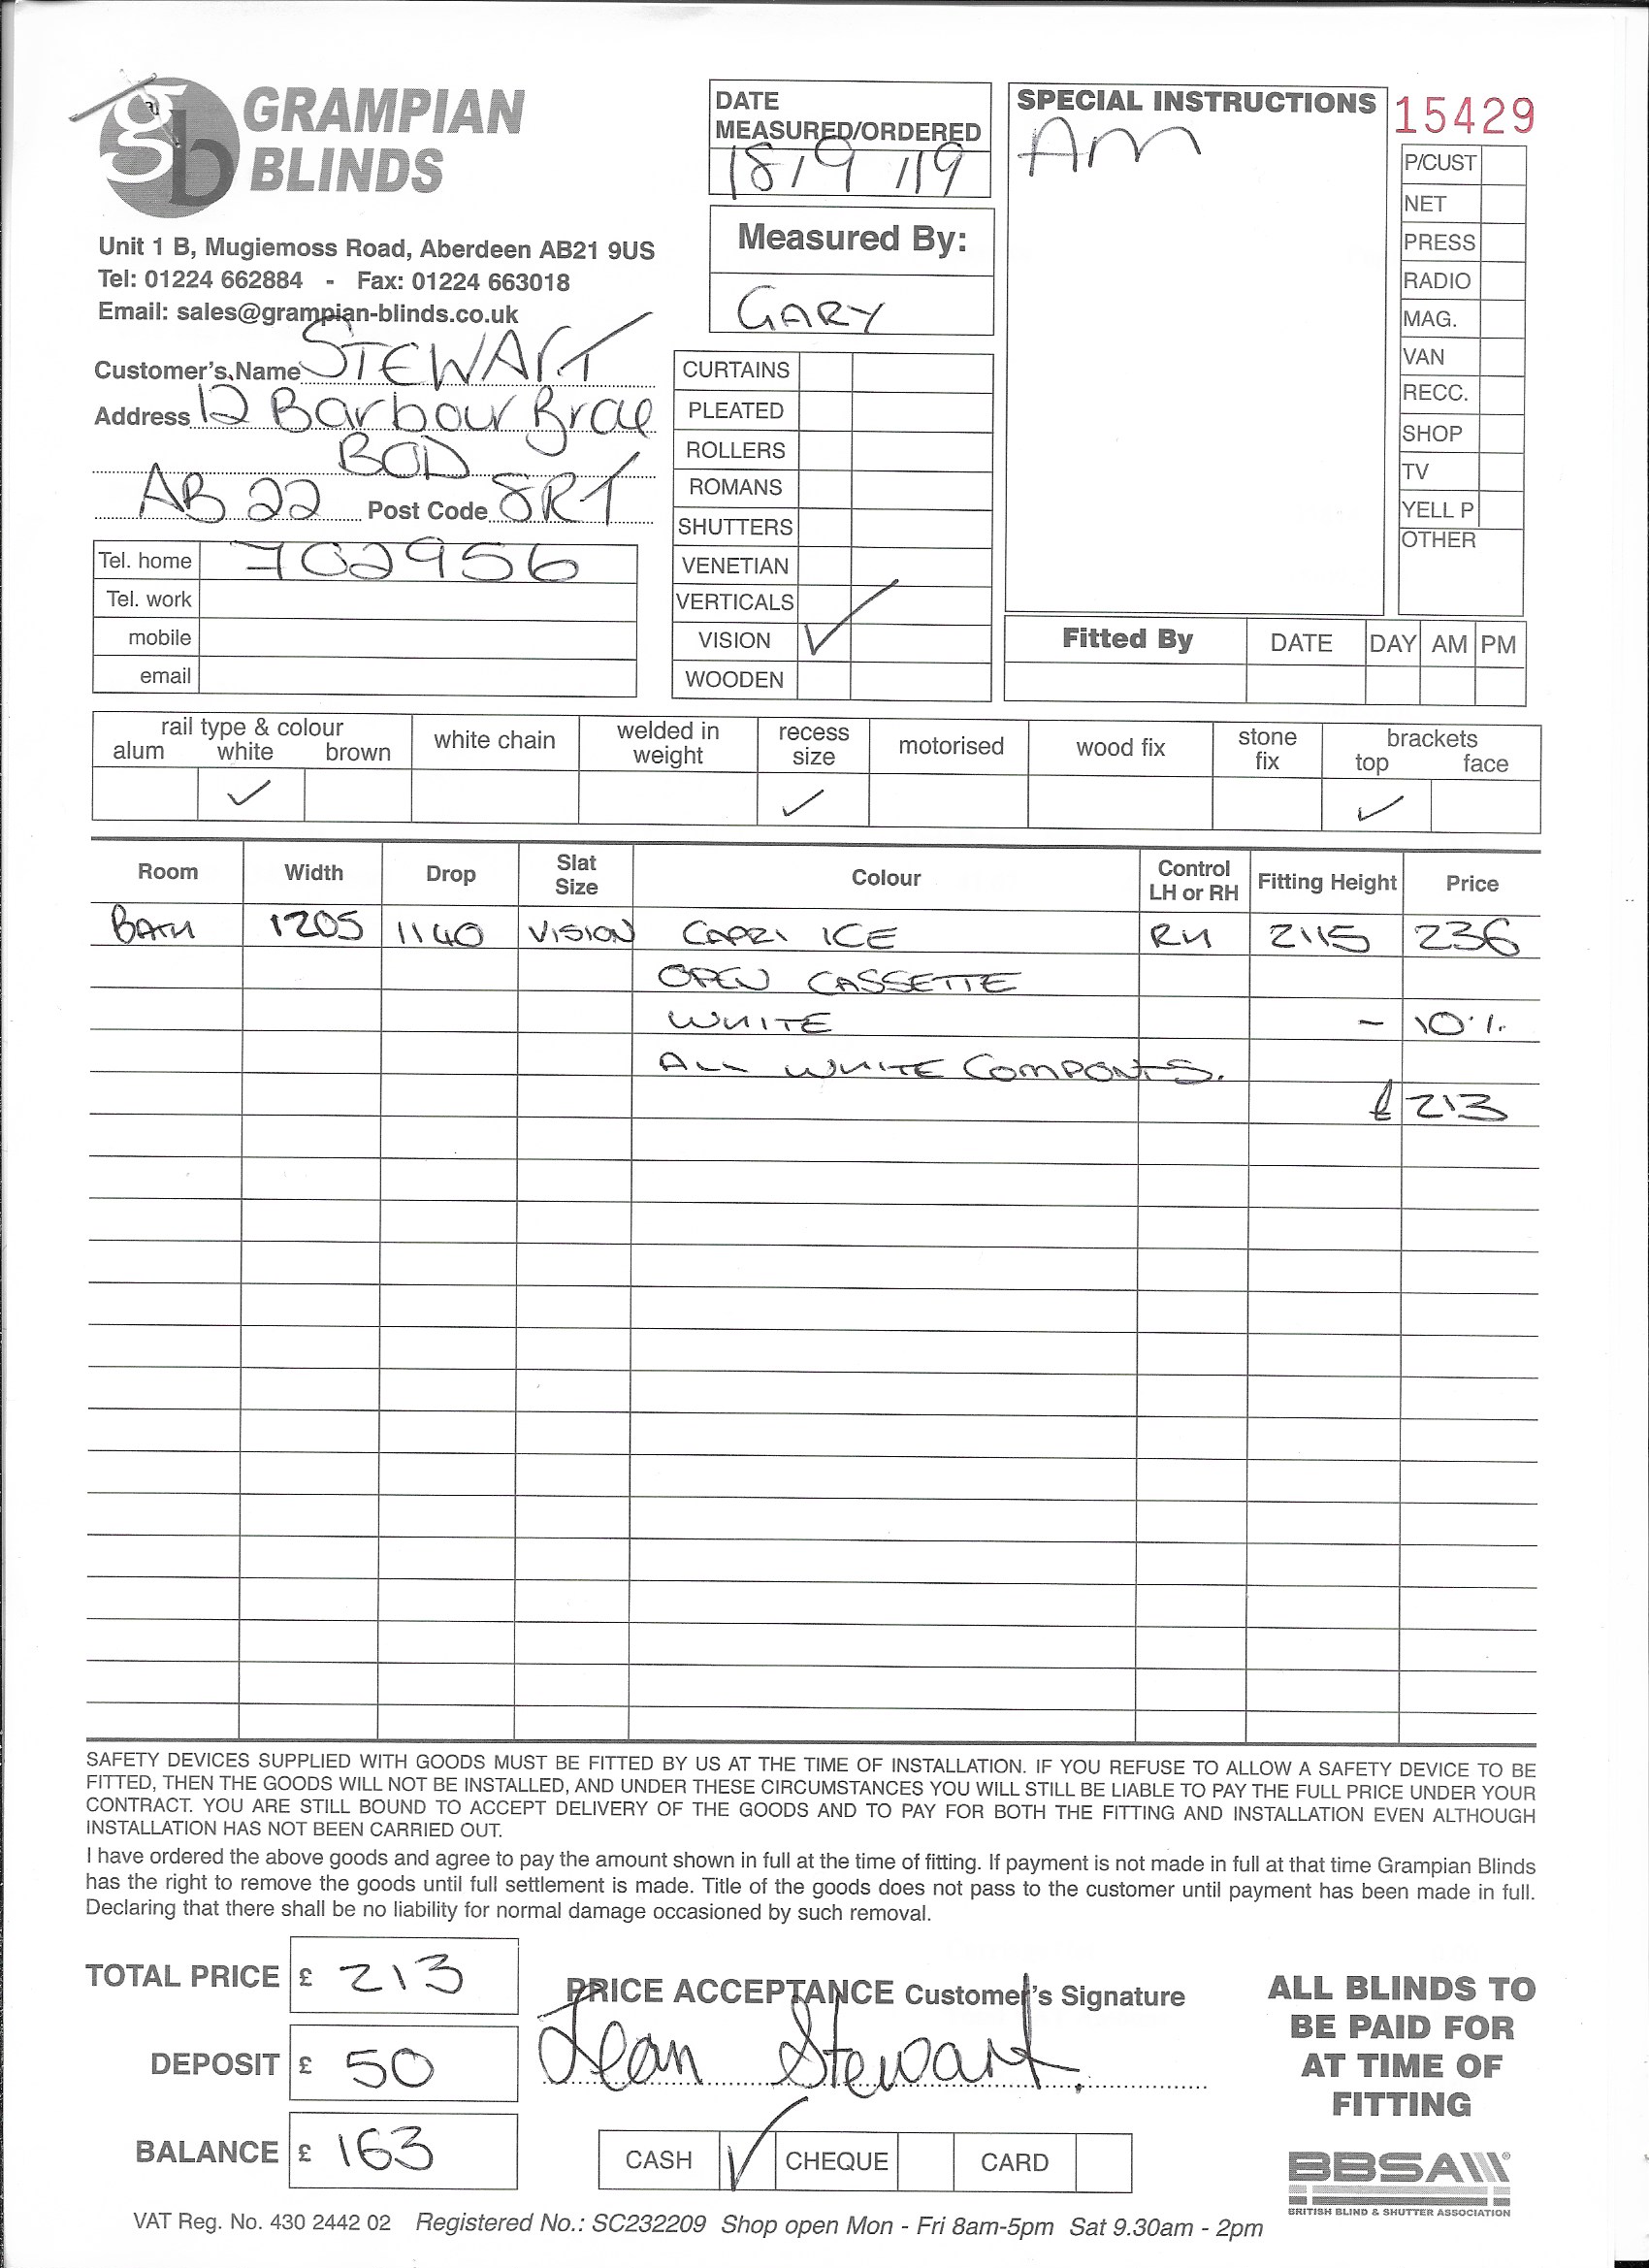 gb GRAMPIAN BLINDS
Unit 1 B, Mugiemoss Road, Aberdeen AB21 9US
Tel: 01224 662884 - Fax: 01224 663018
Email: sales@grampian-blinds.co.uk
Customer's Name STEWART
Address 12 Barbour Brae
BOD
AB 22 Post Code 8RT
Tel. home 702956
Tel. work
mobile
email
DATE
MEASURED/ORDERED
18/9/19
Measured By:
GARY
CURTAINS
PLEATED
ROLLERS
ROMANS
SHUTTERS
VENETIAN
VERTICALS
VISION ✓
WOODEN
SPECIAL INSTRUCTIONS
AM
15429
P/CUST
NET
PRESS
RADIO
MAG.
VAN
RECC.
SHOP
TV
YELL P
OTHER
Fitted By DATE DAY AM PM
rail type & colour white chain welded in weight recess size motorised wood fix stone fix brackets
alum white brown top face
✓ ✓ ✓
Room Width Drop Slat Size Colour Control LH or RH Fitting Height Price
BATH 1205 1140 VISION CAPRI ICE RH 2115 236
OPEN CASSETTE
WHITE - 10%
ALL WHITE COMPONTS.
£ 213
SAFETY DEVICES SUPPLIED WITH GOODS MUST BE FITTED BY US AT THE TIME OF INSTALLATION. IF YOU REFUSE TO ALLOW A SAFETY DEVICE TO BE
FITTED, THEN THE GOODS WILL NOT BE INSTALLED, AND UNDER THESE CIRCUMSTANCES YOU WILL STILL BE LIABLE TO PAY THE FULL PRICE UNDER YOUR
CONTRACT. YOU ARE STILL BOUND TO ACCEPT DELIVERY OF THE GOODS AND TO PAY FOR BOTH THE FITTING AND INSTALLATION EVEN ALTHOUGH
INSTALLATION HAS NOT BEEN CARRIED OUT.
I have ordered the above goods and agree to pay the amount shown in full at the time of fitting. If payment is not made in full at that time Grampian Blinds
has the right to remove the goods until full settlement is made. Title of the goods does not pass to the customer until payment has been made in full.
Declaring that there shall be no liability for normal damage occasioned by such removal.
TOTAL PRICE £ 213
DEPOSIT £ 50
BALANCE £ 163
PRICE ACCEPTANCE Customer's Signature
Jean Stewart.
CASH ✓ CHEQUE CARD
ALL BLINDS TO
BE PAID FOR
AT TIME OF
FITTING
BBSA
BRITISH BLIND & SHUTTER ASSOCIATION
VAT Reg. No. 430 2442 02 Registered No.: SC232209 Shop open Mon - Fri 8am-5pm Sat 9.30am - 2pm